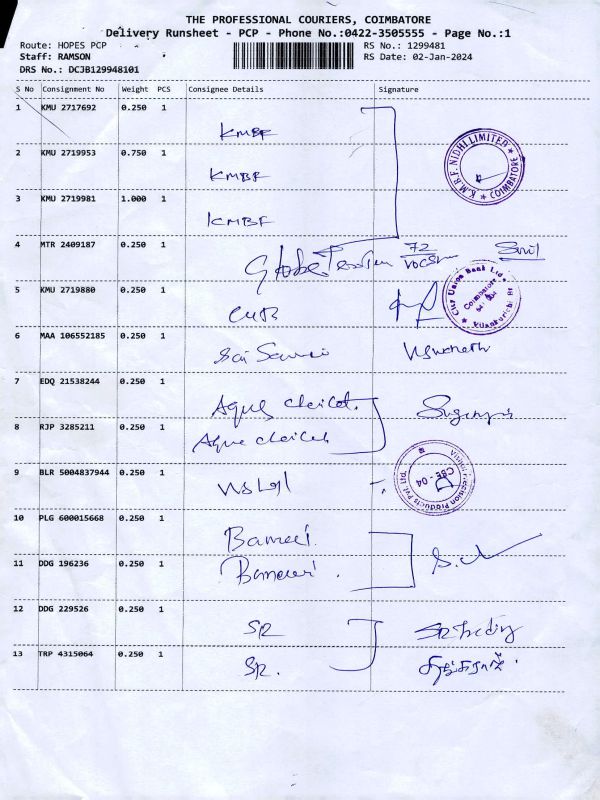 THE PROFESSIONAL COURIERS, COIMBATORE
Delivery Runsheet - PCP - Phone No.:0422-3505555 - Page No.:1
Route: HOPES PCP RS No.: 1299481
Staff: RAMSON RS Date: 02-Jan-2024
DRS No.: DCJB129948101
S No Consignment No Weight PCS Consignee Details Signature
1 KMU 2717692 0.250 1
KMBF
2 KMU 2719953 0.750 1
KMBF
K.M.B.F. NIDHI LIMITED COIMBATORE
3 KMU 2719981 1.000 1
KMBF
4 MTR 2409187 0.250 1
72
5 KMU 2719880 0.250 1
CUB
City Union Bank Ltd. Coimbatore
6 MAA 106552185 0.250 1
Sai
7 EDQ 21538244 0.250 1
Aqua
8 RJP 3285211 0.250 1
Aqua
9 BLR 5004837944 0.250 1
Precision Products Pvt. Ltd. CBE - 04
10 PLG 600015668 0.250 1
11 DDG 196236 0.250 1
12 DDG 229526 0.250 1
SR SR Trading
13 TRP 4315064 0.250 1
SR.